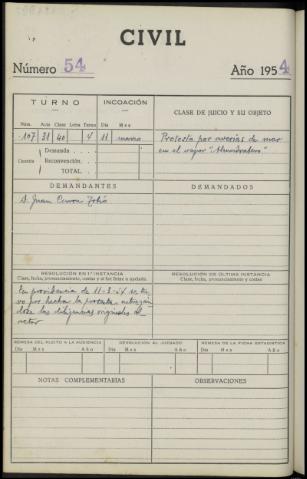 CIVIL
Número 54 Año 1954
TURNO INCOACIÓN CLASE DE JUICIO Y SU OBJETO
Núm. Auto Clase Letra Forma Día Mes
107 31 40 4 11 marzo Protesta por averías de mar
en el vapor
Cuantía Demanda
Reconvención
TOTAL
DEMANDANTES DEMANDADOS
D. Juan
RESOLUCIÓN EN 1ª INSTANCIA RESOLUCIÓN DE ÚLTIMA INSTANCIA
Clase, fecha, pronunciamiento, costas y si fué firme o apelada Clase, fecha, pronunciamiento y costas
En providencia de 11-3-54 se tu-
vo por hecha la protesta,
dose las diligencias originales al
actor
REMESA DEL PLEITO A LA AUDIENCIA DEVOLUCIÓN AL JUZGADO REMESA DE LA FICHA ESTADÍSTICA
Día Mes Año Día Mes Año Día Mes Año
NOTAS COMPLEMENTARIAS OBSERVACIONES